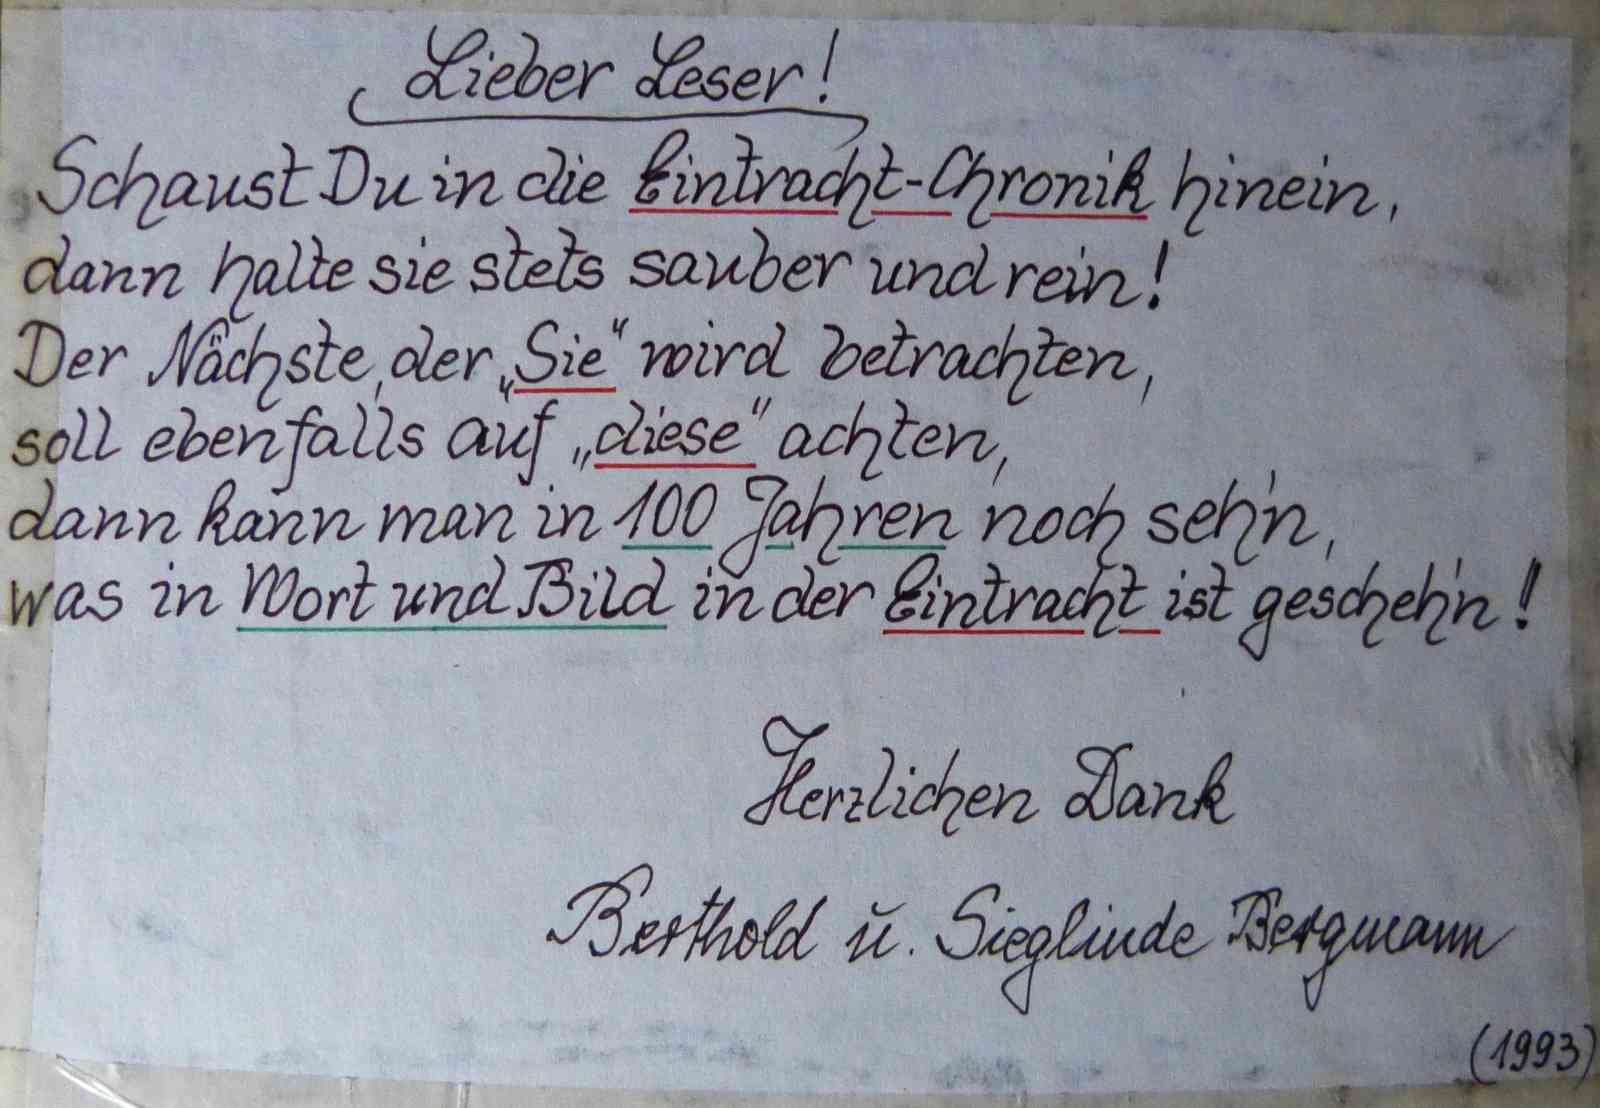 Lieber Leser!
Schaust Du in die Eintracht-Chronik hinein,
dann halte sie stets sauber und rein!
Der Nächste, der „Sie“ wird betrachten,
soll ebenfalls auf „diese“ achten,
dann kann man in 100 Jahren noch seh'n,
was in Wort und Bild in der Eintracht ist gescheh'n!
Herzlichen Dank
Berthold u. Sieglinde Bergmann
(1993)